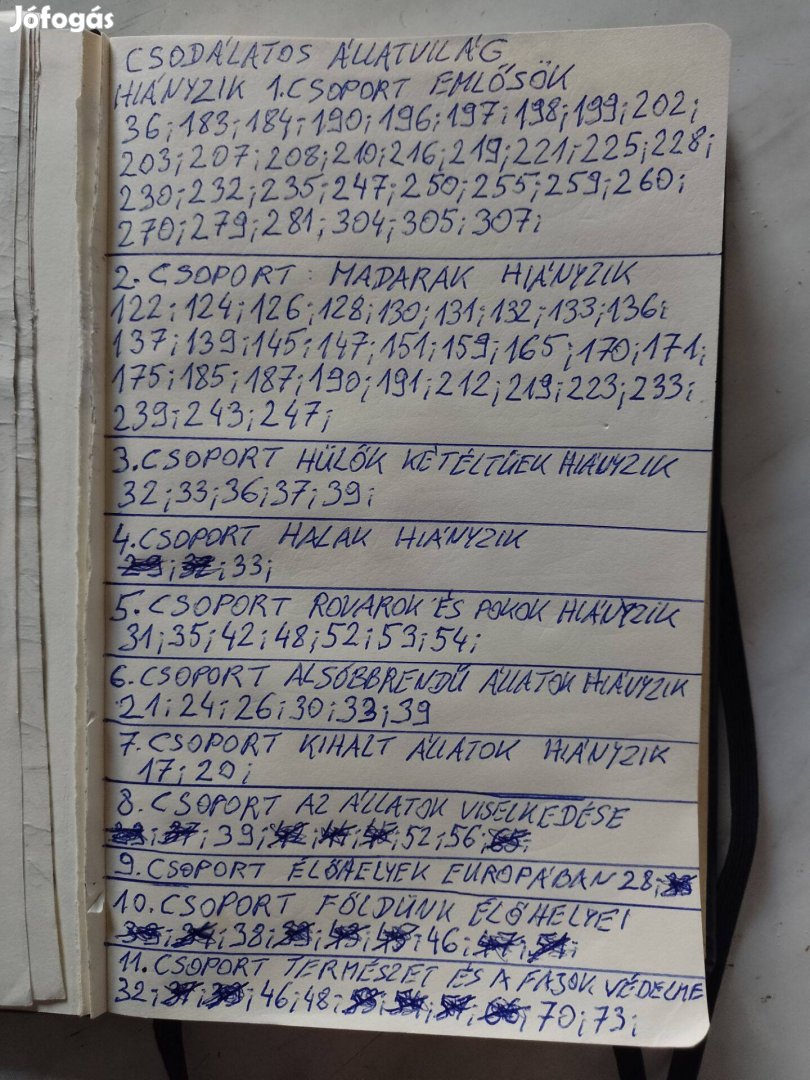 Jófogás
CSODÁLATOS ÁLLATVILÁG
HIÁNYZIK 1. CSOPORT EMLŐSÖK
36; 183; 184; 190; 196; 197; 198; 199; 202;
203; 207; 208; 210; 216; 219; 221; 225; 228;
230; 232; 235; 247; 250; 255; 259; 260;
270; 279; 281; 304; 305; 307;
2. CSOPORT: MADARAK HIÁNYZIK
122; 124; 126; 128; 130; 131; 132; 133; 136;
137; 139; 145; 147; 151; 159; 165; 170; 171;
175; 185; 187; 190; 191; 212; 219; 223; 233;
239; 243; 247;
3. CSOPORT HÜLŐK KÉTÉLTŰEK HIÁNYZIK
32; 33; 36; 37; 39;
4. CSOPORT HALAK HIÁNYZIK
33;
5. CSOPORT ROVAROK ÉS PÓKOK HIÁNYZIK
31; 35; 42; 48; 52; 53; 54;
6. CSOPORT ALSÓBBRENDŰ ÁLLATOK HIÁNYZIK
21; 24; 26; 30; 33; 39
7. CSOPORT KIHALT ÁLLATOK HIÁNYZIK
17; 20;
8. CSOPORT AZ ÁLLATOK VISELKEDÉSE
39; 52; 56;
9. CSOPORT ÉLŐHELYEK EUROPÁBAN 28;
10. CSOPORT FÖLDÜNK ÉLŐHELYEI
38; 46;
11. CSOPORT TERMÉSZET ÉS A FAJOK VÉDELME
32; 46; 48; 70; 73;